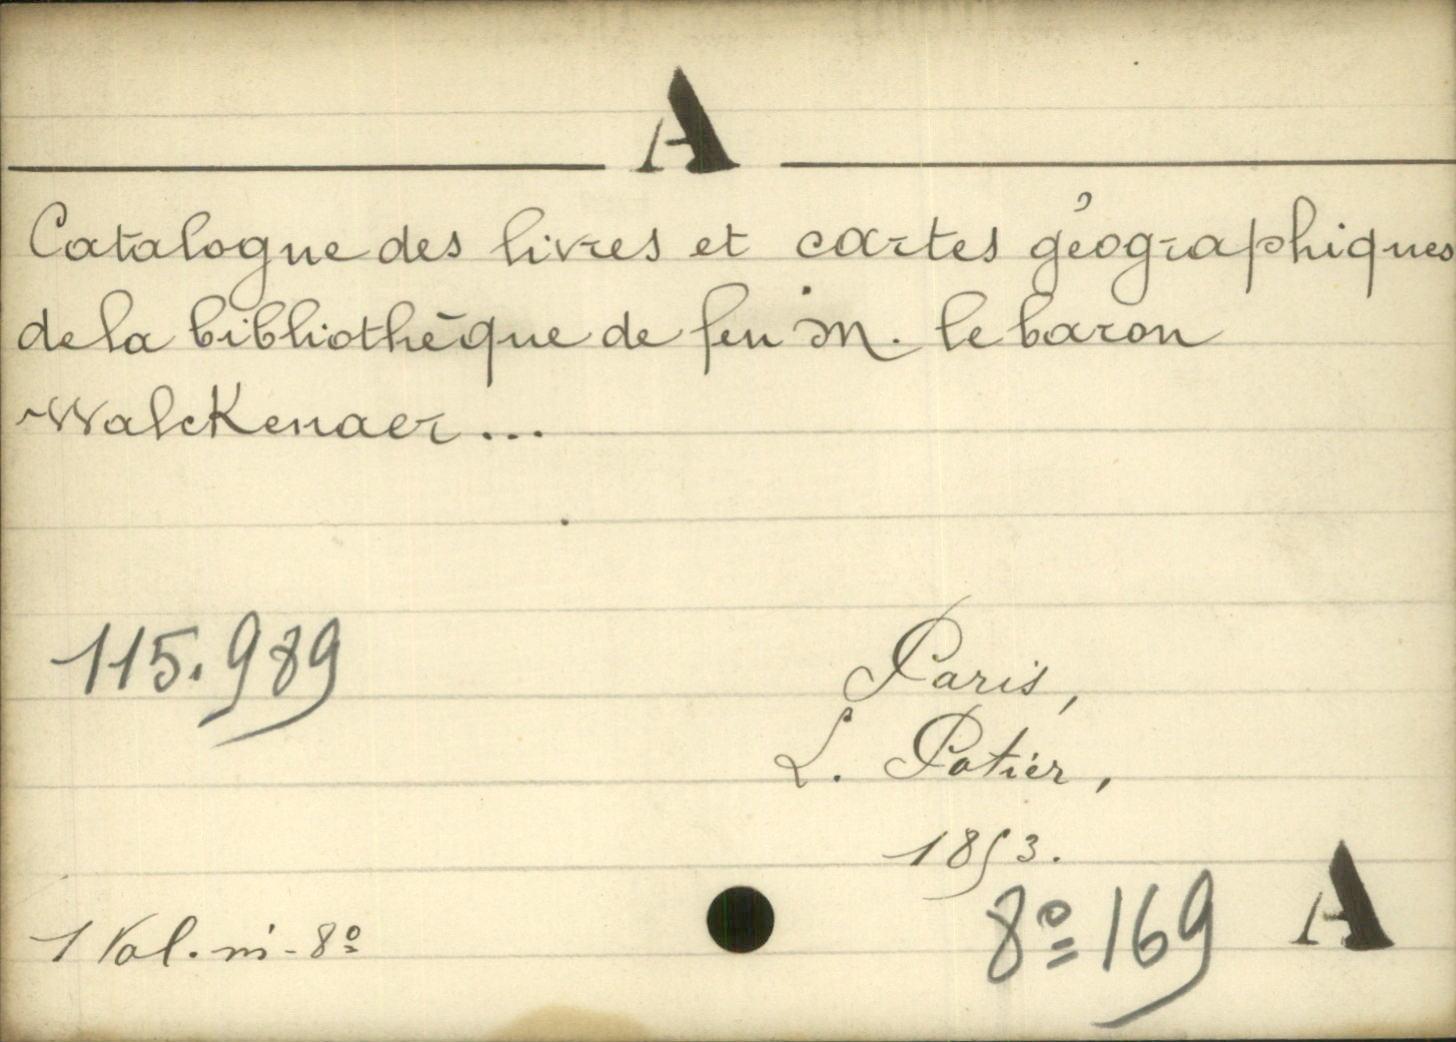 A
Catalogue des livres et cartes géographiques
de la bibliothèque de feu M. le baron
Walckenaer...
115.989
Paris,
L. Potier,
1853.
8º 169 A
1 Vol. in-8º